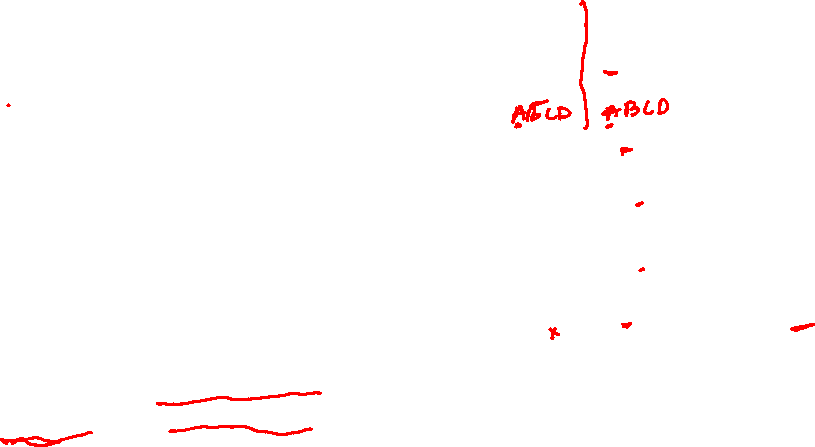 ABCD ABCD